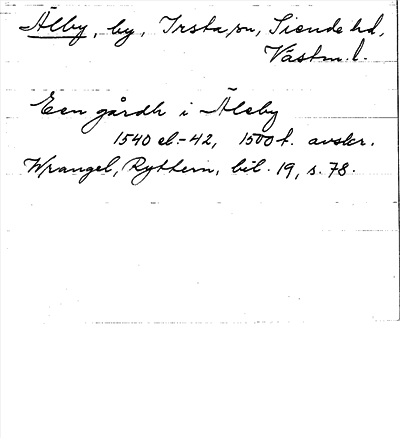 Älby, by, Irsta sn, Siende hd,
Västm. l.
Een gårdh i Äleby
1540 el.-42, 1500 t. avskr.
Wrangel, Ryttern, bil. 19, s. 78.